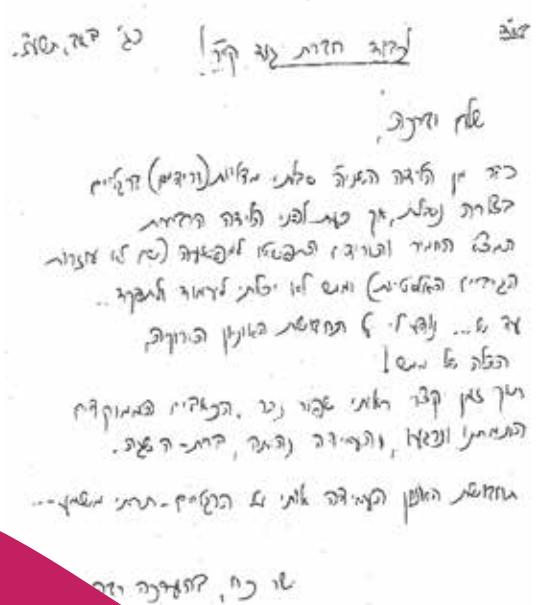 בס"ד
כג' באב, תשע"ג.
לכבוד חברת גוד קר!
שלום וברכה,
כבר מן הלידה השניה סבלתי מדליות (ורידים) ברגליים
בצורה נסבלת, אך כעת לפני הלידה הרביעית
המצב החמיר והורידים התפשטו למפשעה (שם לא עוזרות
הגרביים האלסטיות) וממש לא יכלתי לעמוד ולתפקד..
עד ש... נודע לי על תחבושת האוניון הירוקה,
הצלה של ממש!
תוך זמן קצר ראיתי שפור ניכר, הכאבים הממוקדים
התמתנו ונרגעו, והעמידה נהיתה, ברת-השגה.
תחבושת האוניון העמידה אותי על הרגליים-תרתי משמע...
ישר כח, בהערכה רבה